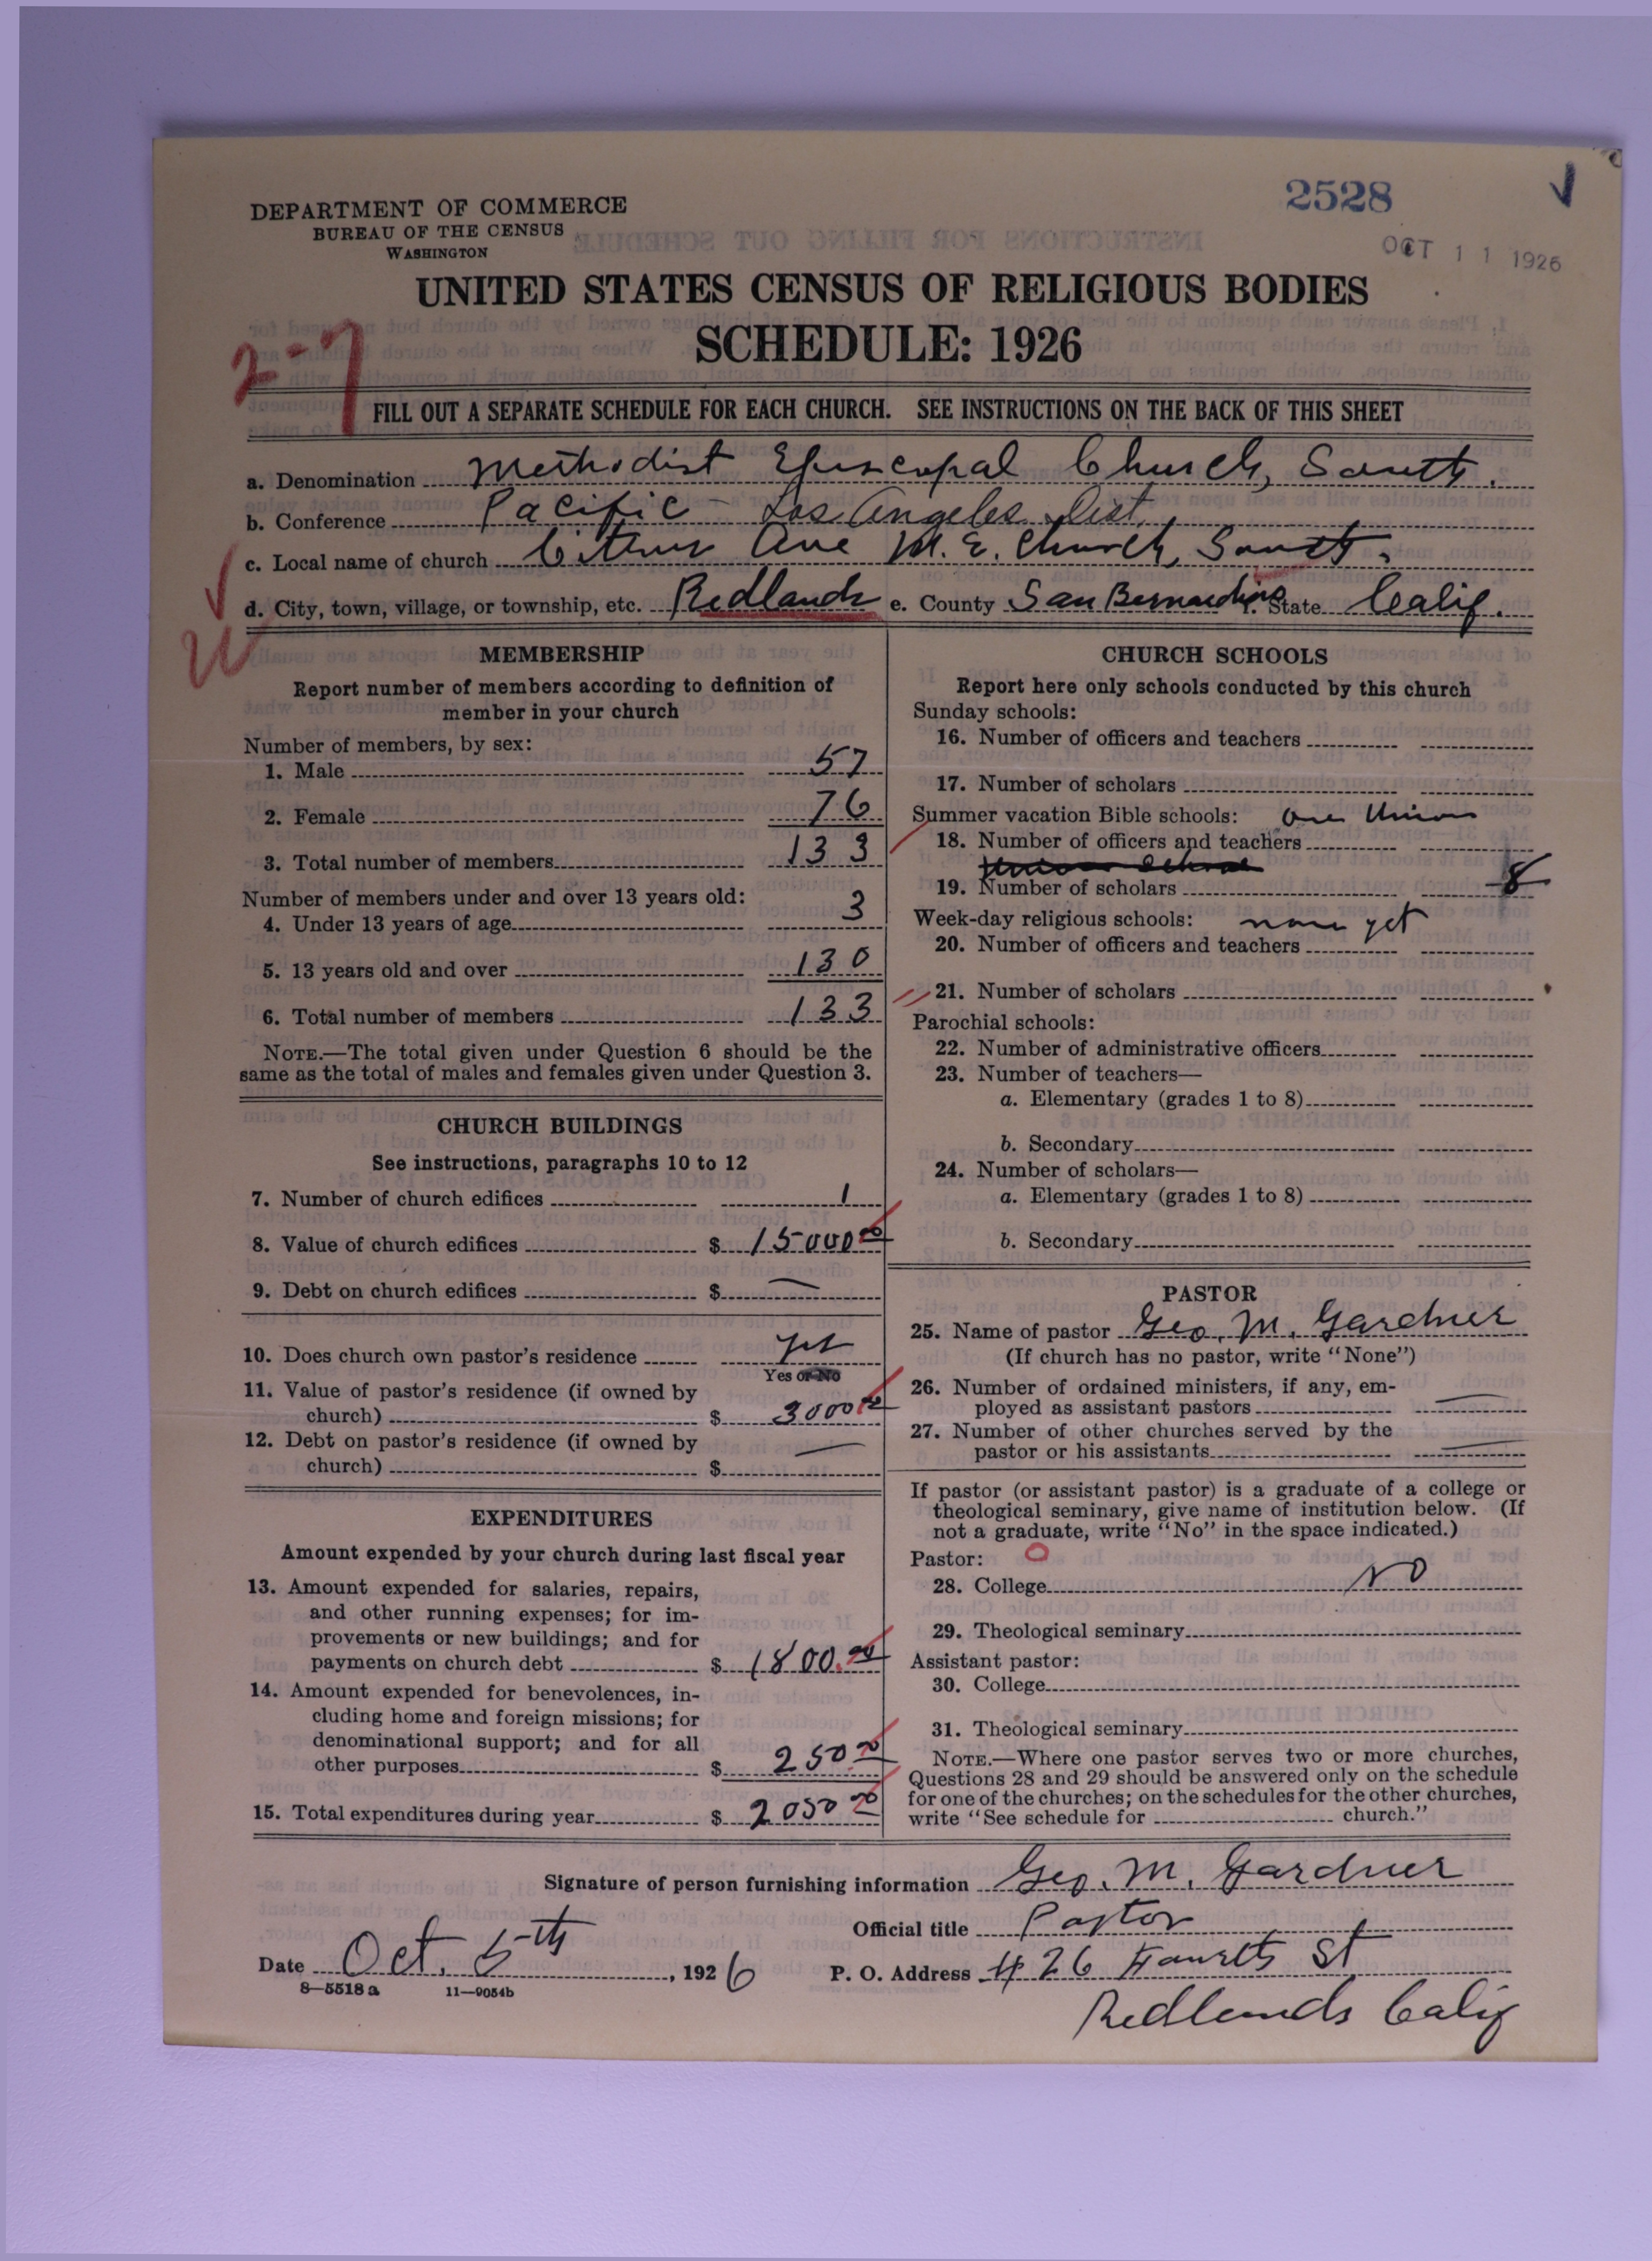 2528
OCT 11 1926
DEPARTMENT OF COMMERCE
BUREAU OF THE CENSUS
WASHINGTON
UNITED STATES CENSUS OF RELIGIOUS BODIES
SCHEDULE: 1926
2-7
FILL OUT A SEPARATE SCHEDULE FOR EACH CHURCH. SEE INSTRUCTIONS ON THE BACK OF THIS SHEET
a. Denomination Methodist Episcopal Church, South.
b. Conference Pacific - Los Angeles Dist.
c. Local name of church Citrus Ave M. E. Church, South.
d. City, town, village, or township, etc. Redlands e. County San Bernardino State Calif.
MEMBERSHIP
Report number of members according to definition of
member in your church
Number of members, by sex:
1. Male 57
2. Female 76
3. Total number of members 133
Number of members under and over 13 years old:
4. Under 13 years of age 3
5. 13 years old and over 130
6. Total number of members 133
NOTE.—The total given under Question 6 should be the
same as the total of males and females given under Question 3.
CHURCH BUILDINGS
See instructions, paragraphs 10 to 12
7. Number of church edifices 1
8. Value of church edifices $ 15000 00
9. Debt on church edifices $ —
10. Does church own pastor's residence yes
Yes or No
11. Value of pastor's residence (if owned by
church) $ 3000 00
12. Debt on pastor's residence (if owned by
church) $ —
EXPENDITURES
Amount expended by your church during last fiscal year
13. Amount expended for salaries, repairs,
and other running expenses; for im-
provements or new buildings; and for
payments on church debt $ 1800.00
14. Amount expended for benevolences, in-
cluding home and foreign missions; for
denominational support; and for all
other purposes $ 250.00
15. Total expenditures during year $ 2050 00
CHURCH SCHOOLS
Report here only schools conducted by this church
Sunday schools:
16. Number of officers and teachers
17. Number of scholars
Summer vacation Bible schools: one Union
18. Number of officers and teachers
19. Number of scholars 8
Week-day religious schools: none yet
20. Number of officers and teachers
21. Number of scholars
Parochial schools:
22. Number of administrative officers
23. Number of teachers—
a. Elementary (grades 1 to 8)
b. Secondary
24. Number of scholars—
a. Elementary (grades 1 to 8)
b. Secondary
PASTOR
25. Name of pastor Geo. M. Gardner
(If church has no pastor, write "None")
26. Number of ordained ministers, if any, em-
ployed as assistant pastors —
27. Number of other churches served by the
pastor or his assistants —
If pastor (or assistant pastor) is a graduate of a college or
theological seminary, give name of institution below. (If
not a graduate, write "No" in the space indicated.)
Pastor: O
28. College No
29. Theological seminary
Assistant pastor:
30. College
31. Theological seminary
NOTE.—Where one pastor serves two or more churches,
Questions 28 and 29 should be answered only on the schedule
for one of the churches; on the schedules for the other churches,
write "See schedule for church."
Signature of person furnishing information Geo. M. Gardner
Official title Pastor
Date Oct. 5th, 1926 P. O. Address 426 Fourth St
8-5518a 11-9054b
Redlands Calif